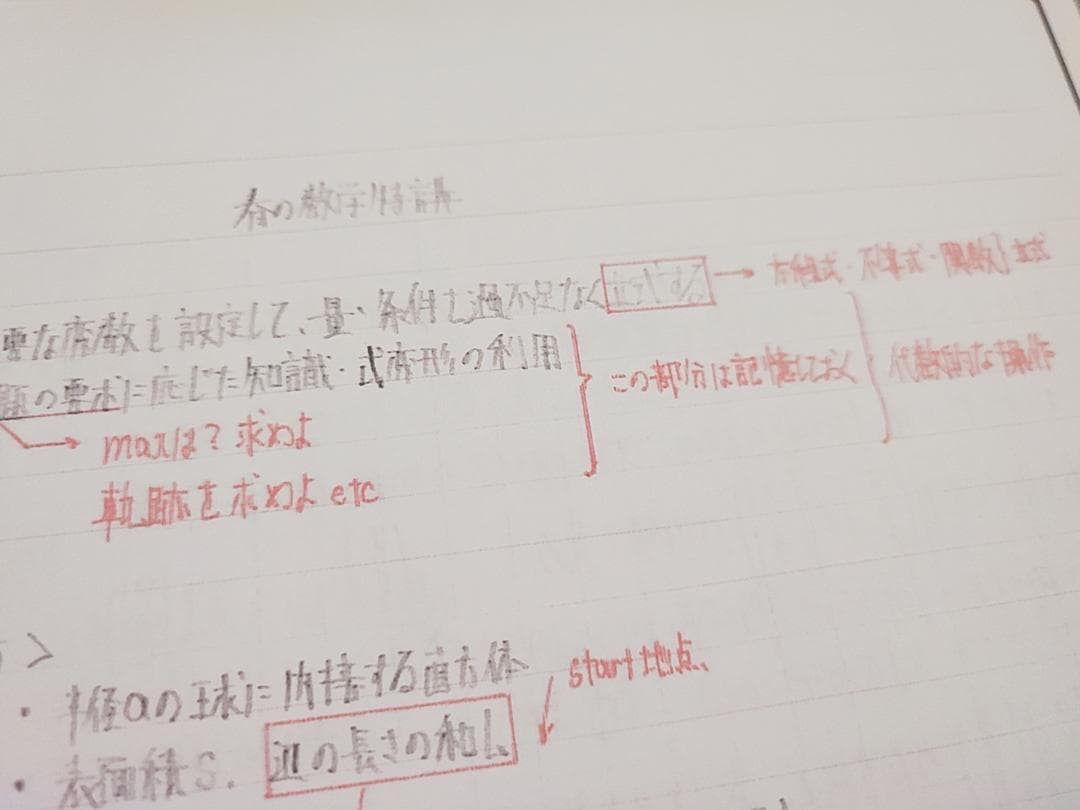 春の数学特講
要な変数を設定して、量・条件を過不足なく立式する → 方程式・不等式・関数 立式
題の要求に応じた知識・式変形の利用 この部分は記憶しておく 代数的な操作
→ maxは?求めよ
軌跡を求めよ etc
>
・半径aの球に内接する直方体 start地点、
・表面積S. 辺の長さの和L